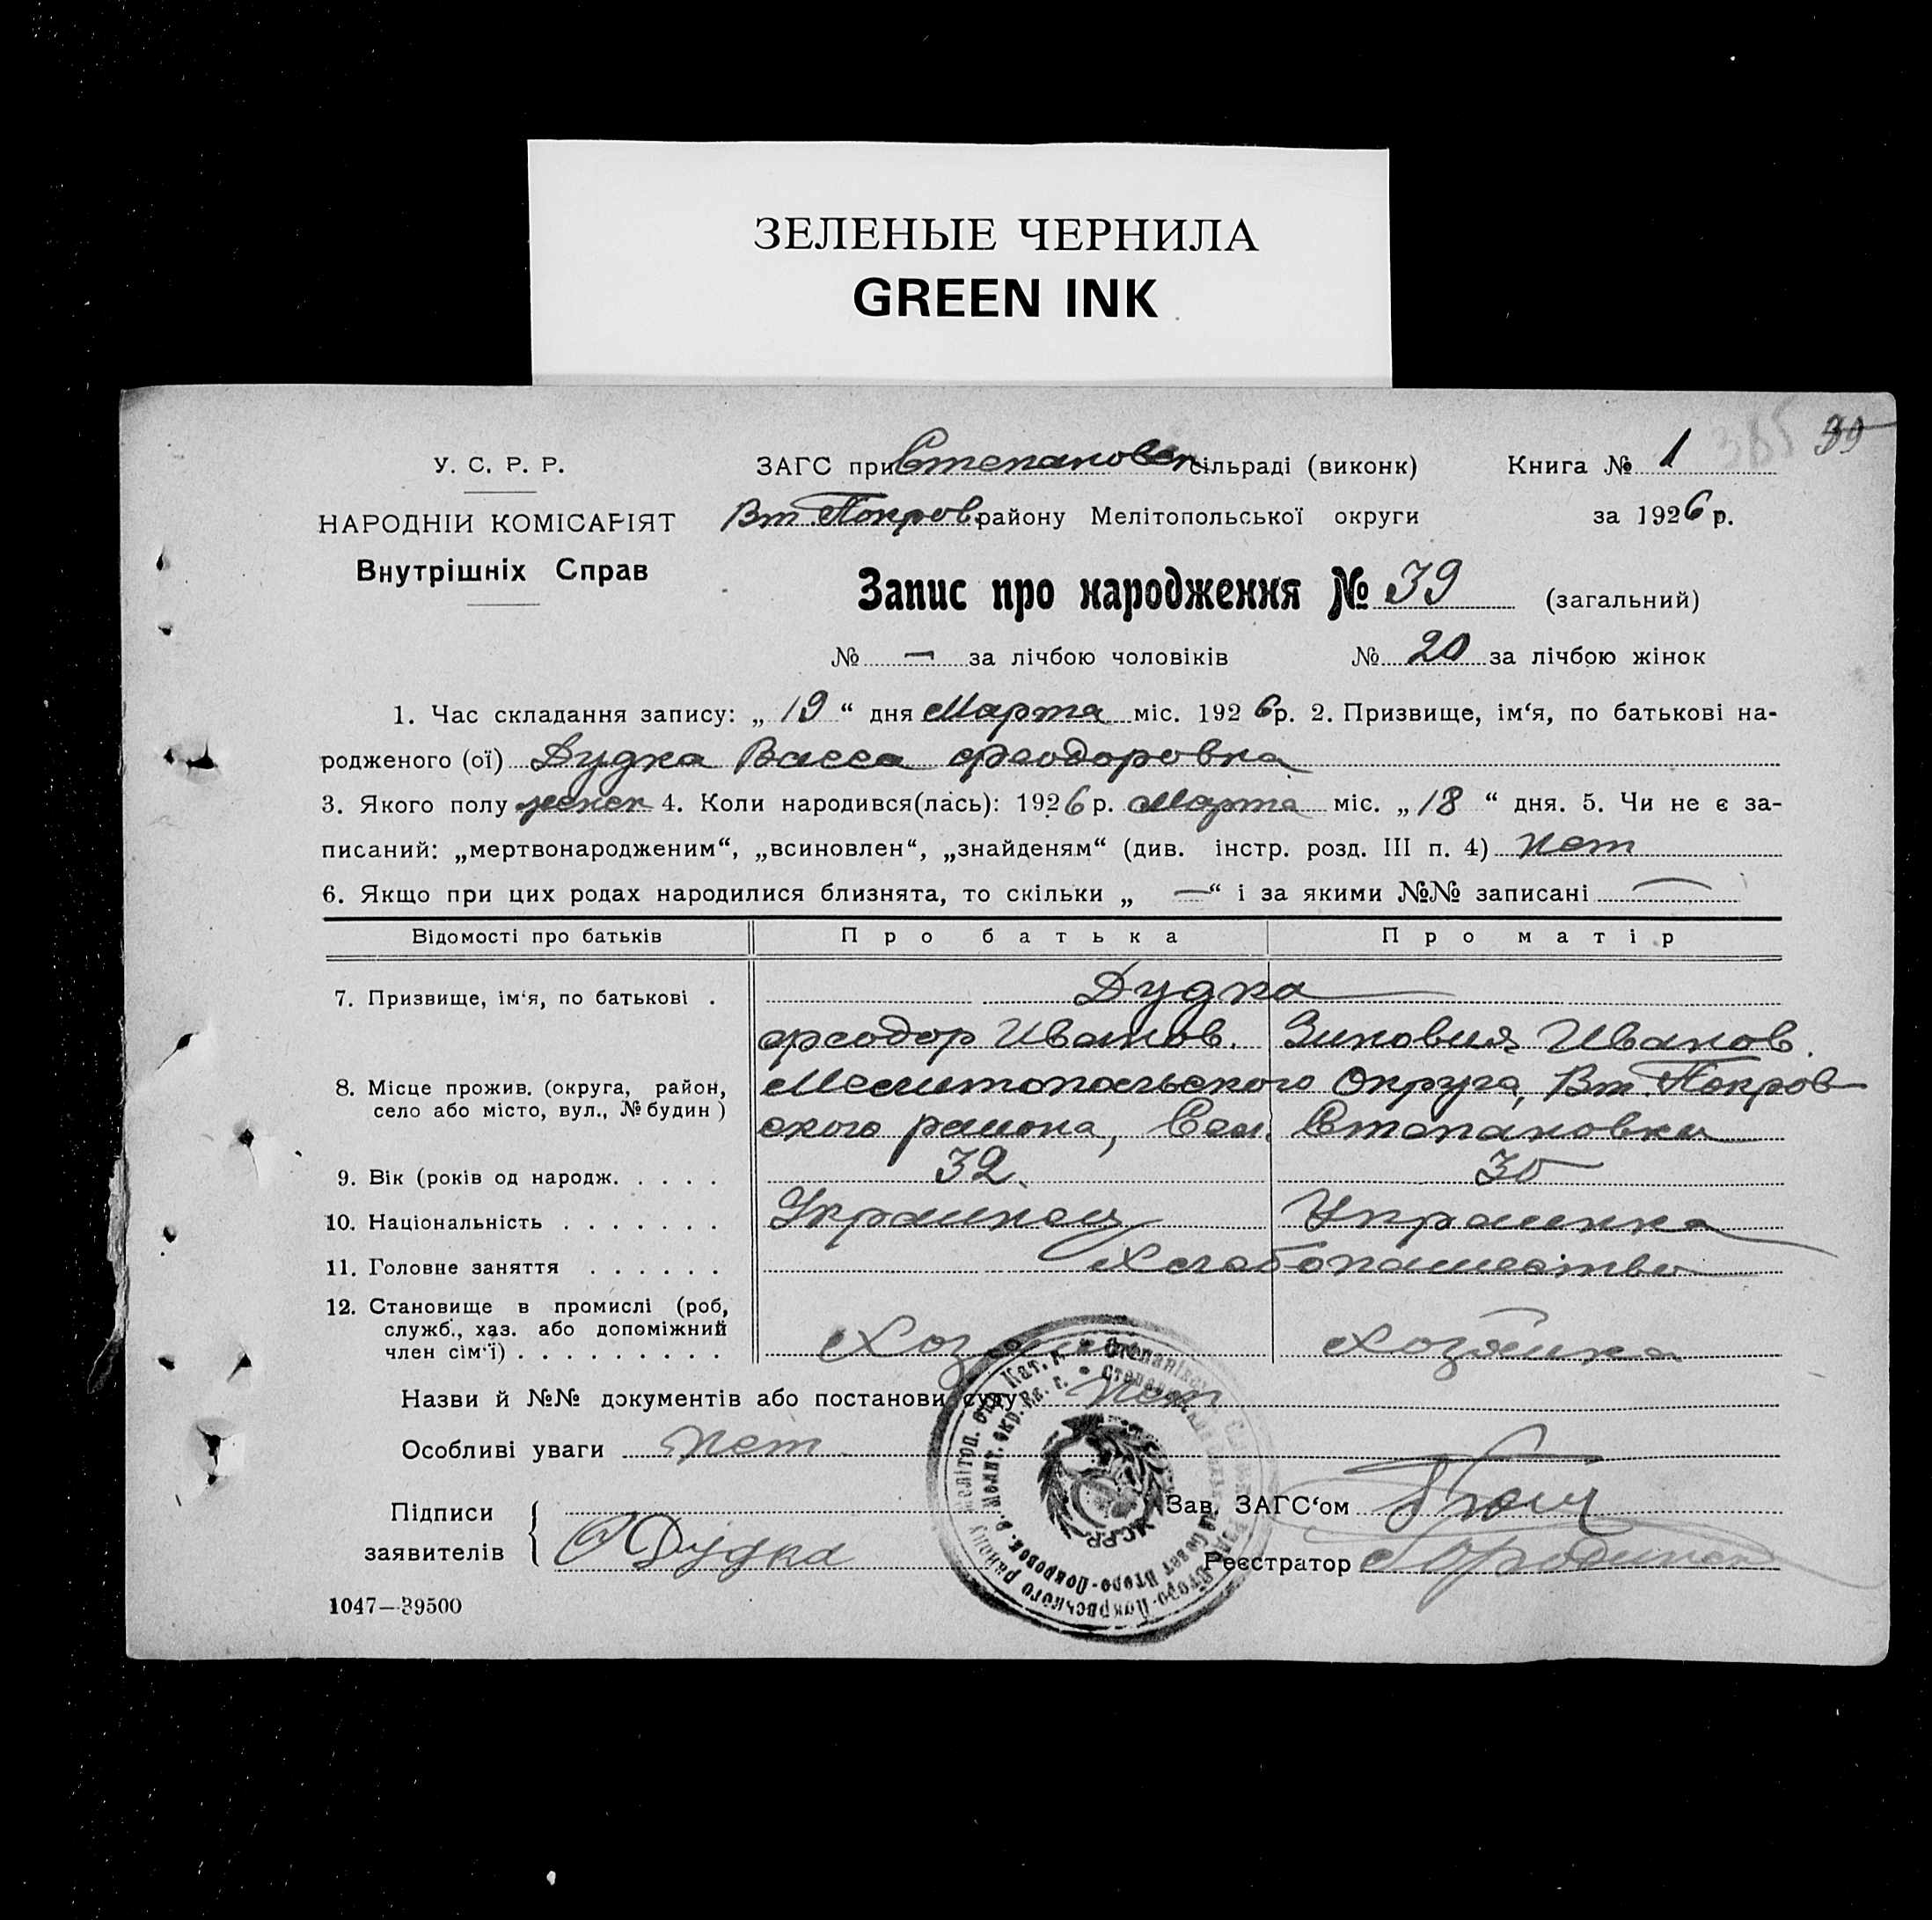 ЗЕЛЕНЫЕ ЧЕРНИЛА
GREEN INK
385 39
У. С. Р. Р.
НАРОДНІЙ КОМІСАРІЯТ
Внутрішніх Справ
ЗАГС при Степановск сільраді (виконк) Книга № 1
Вт. Покров. району Мелітопольської округи за 1926 р.
Запис про народження № 39 (загальний)
№ — за лічбою чоловіків № 20 за лічбою жінок
1. Час складання запису: „ 19 “ дня Марта міс. 1926 р. 2. Призвище, ім‘я, по батькові на-
родженого (ої) Дудка Васса Феодоровна
3. Якого полу женск 4. Коли народився(лась): 1926 р. Марта міс. „ 18 “ дня. 5. Чи не є за-
писаний: „мертвонародженим“, „всиновлен“, „знайденям“ (див. інстр. розд. III п. 4) Нет
6. Якщо при цих родах народилися близнята, то скільки „ — “ і за якими №№ записані —
Відомості про батьків Про батька Про матір
7. Призвище, ім‘я, по батькові . Дудка
Феодор Иванов. Зиновия Иванов.
8. Місце прожив. (округа, район, село або місто, вул., № будин ) Мелитопольского Округа, Вт. Покров-
ского района, Сел. Степановки
9. Вік (років од народж. . . . . 32. 30
10. Національність . . . . . . . Украинец Украинка
11. Головне заняття . . . . . . Хлебопашество
12. Становище в промислі (роб, служб., хаз. або допоміжний член сім‘ї) . . . . . . . . . Хозяин Хозяйка
Назви й №№ документів або постанови суду Нет
Особливі уваги Нет
Підписи заявителів Дудка
Зав. ЗАГС‘ом
Реєстратор
УСРР
1047—39500